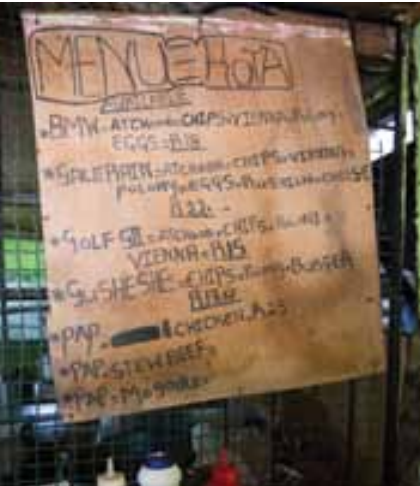 MENUE KOTA
AVAILABLE
*BMW=ATCHAR+CHIPS+VIENNA+POLONY+
EGGS=R18
ATCHAR+CHIPS+VIENNA+
POLONY+EGGS+RUSSIAN+CHEESE
R22
*GOLF =ATCHAR+CHIPS+
VIENNA=R15
*GUSHESHE=CHIPS+POLONY+BURGER
*PAP CHICKEN R25
*PAP+STEW BEEF=
*PAP+MOGODU=